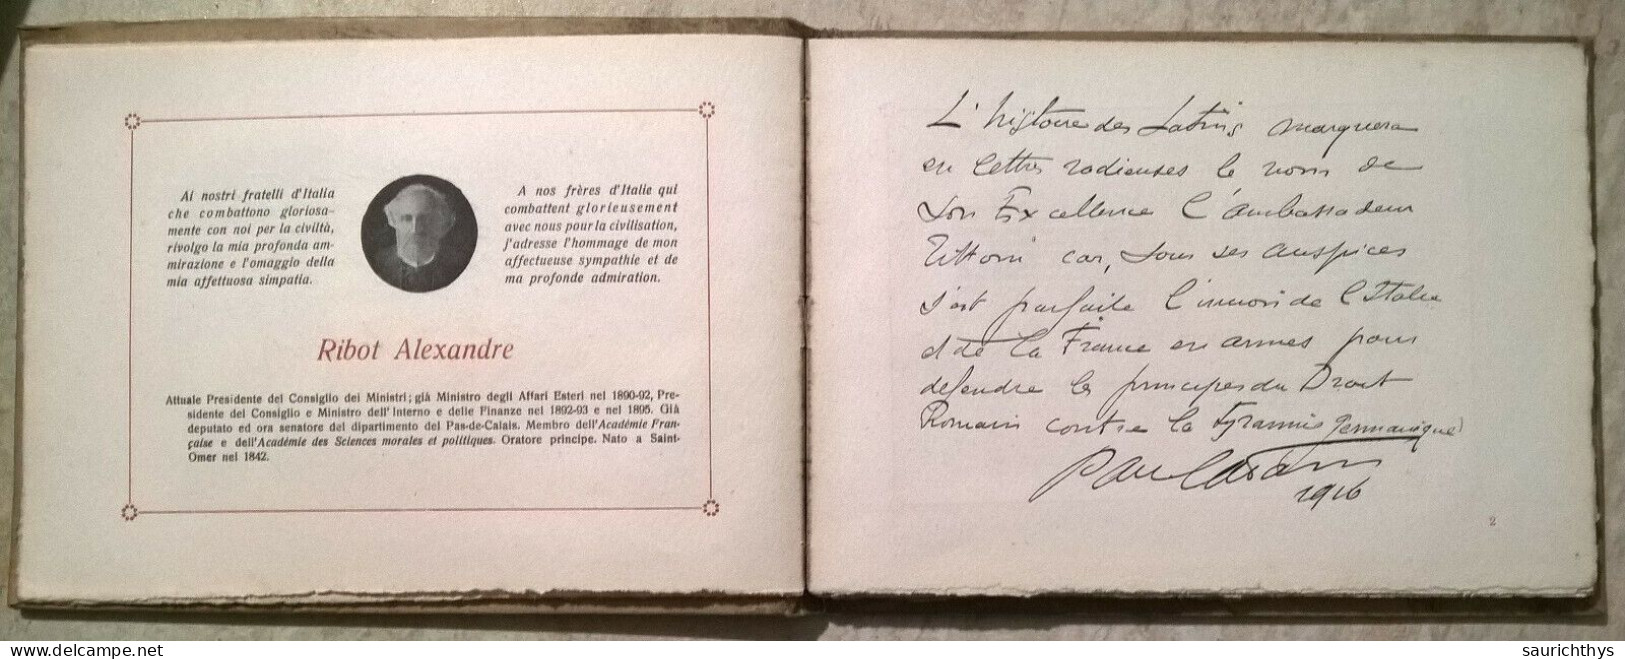 Ai nostri fratelli d'Italia
che combattono gloriosa-
mente con noi per la civiltà,
rivolgo la mia profonda am-
mirazione e l'omaggio della
mia affettuosa simpatia.
A nos frères d'Italie qui
combattent glorieusement
avec nous pour la civilisation,
j'adresse l'hommage de mon
affectueuse sympathie et de
ma profonde admiration.
Ribot Alexandre
Attuale Presidente del Consiglio dei Ministri; già Ministro degli Affari Esteri nel 1890-92, Pre-
sidente del Consiglio e Ministro dell'Interno e delle Finanze nel 1892-93 e nel 1895. Già
deputato ed ora senatore del dipartimento del Pas-de-Calais. Membro dell'Académie Fran-
çaise e dell'Académie des Sciences morales et politiques. Oratore principe. Nato a Saint-
Omer nel 1842.
L'histoire des Latins marquera
en lettres radieuses le nom de
Son Excellence l'Ambassadeur
Tittoni car, sous ses auspices
s'est parfaite l'union de l'Italie
et de la France en armes pour
défendre les principes du Droit
Romain contre la tyrannie germanique
1916
2
saurichthys